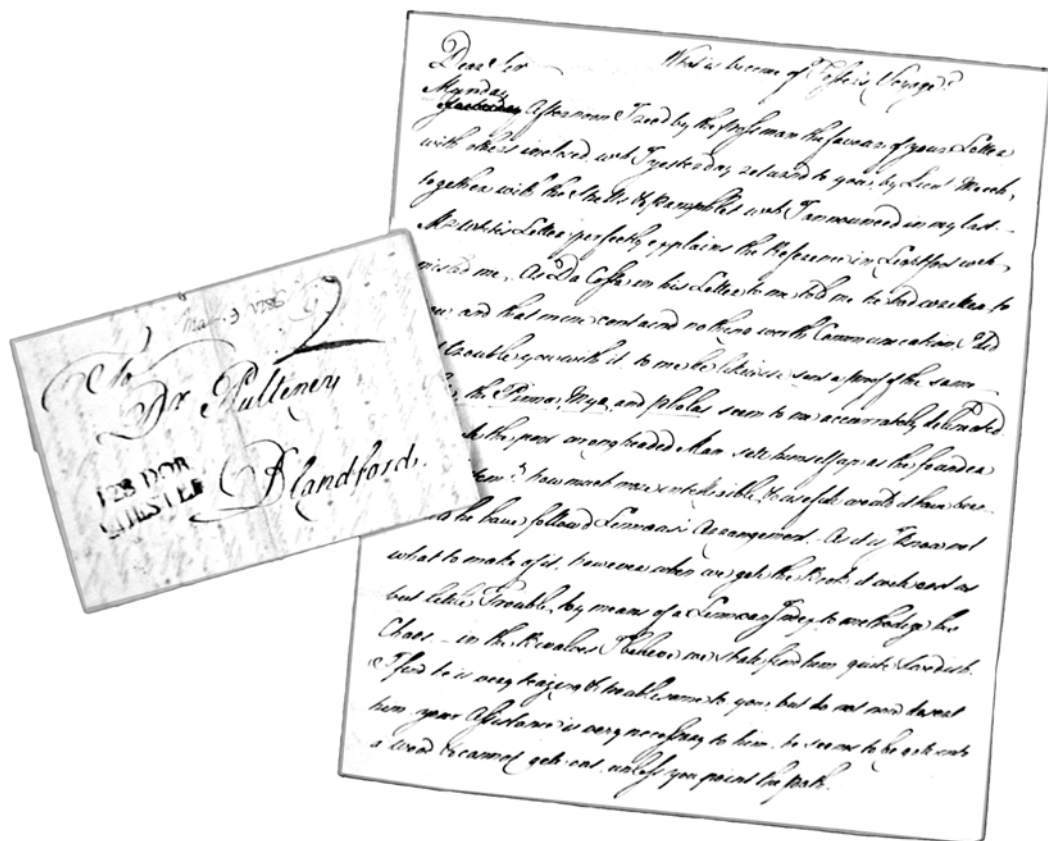 Mar. 3 1786
2
To
Dr Pulteney
Blandford.
128 DOR
CHESTER
What is become of Voyage?
Dear Sir
Munday
Yesterday Afternoon I recd by the man the favour of your Letter
with others inclosed wch I yesterday returnd to you, by Lieut Meech,
together with the Shells & Pamphlet wch I announced in my last. –
Mr Letter perfectly explains the Reference in Lightfoot wch
misled me. As Da Costa in his Letter to me told me he had written to
and that mine containd nothing worth Communication, I did
trouble you with it. to me he likewise sent a proof of the same
the Pinna, Mya, and pholas seem to me accurately delineated.
the poor wrongheaded Man sett himself up as the founder
how much more intelligible & useful would it have been
he have followd Linnaeus's Arrangement. As it is I know not
what to make of it. however when we gett the Book it will cost us
but little Trouble, by means of a Linnaean Index to methodize his
Chaos – in the Bivalves I believe we shall find him quite Swedish.
I find he is very teazing & troublesome to you, but do not now desert
him. your Assistance is very necessary to him. he seems to be gott into
a wood & cannot gett out unless you point the path.